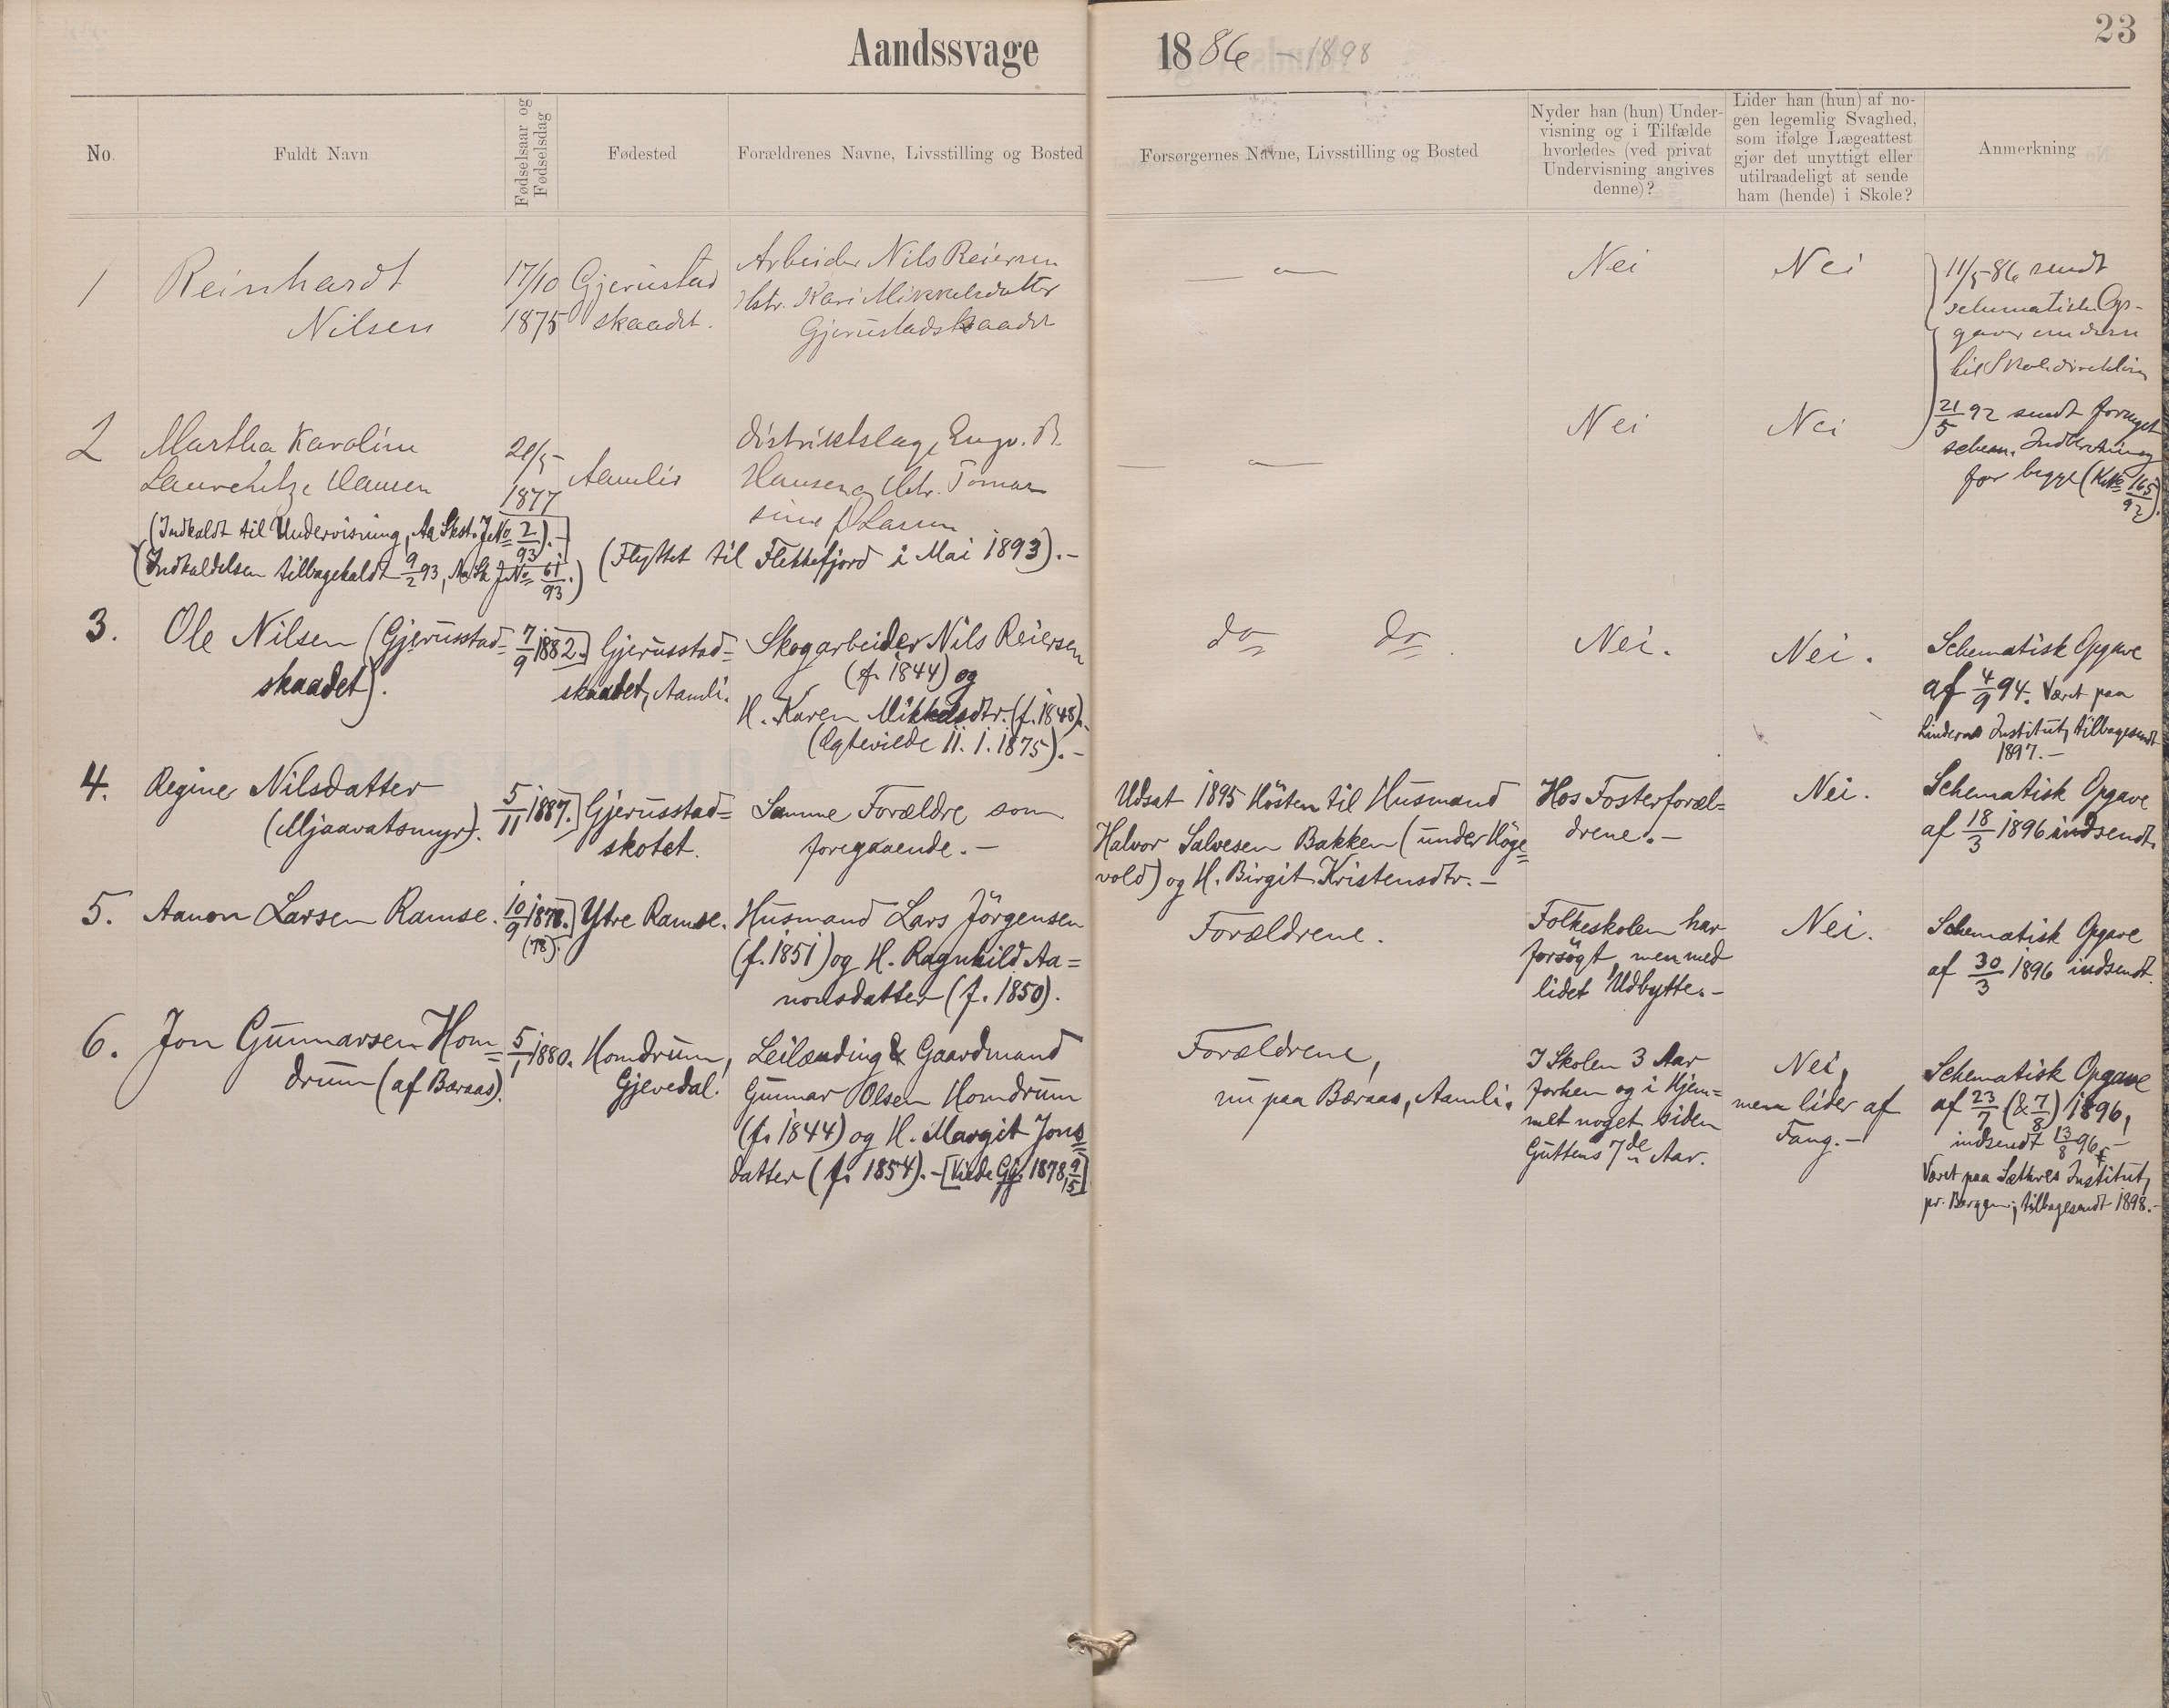 23
Aandssvage 1886 – 1898
No.
Fuldt Navn
Fødselsaar og
Fødselsdag
Fødested
Forældrenes Navne, Livsstilling og Bosted
Forsørgernes Navne, Livsstilling og Bosted
Nyder han (hun) Under-
visning og i Tilfælde
hvorledes (ved privat
Undervisning angives
denne)?
Lider han (hun) af no-
gen legemlig Svaghed,
som ifølge Lægeattest
gjør det unyttigt eller
utilraadeligt at sende
ham (hende) i Skole?
Anmerkning
1
Reinhardt
Nilsen
17/10
1875
Gjerustad
skaadet.
Arbeider Nils Reiersen
Hstr. Kari Mikkelsdatter
Gjerustadskaadet
— " —
Nei
Nei
11/5-86 sendt
schematiske Op-
gaver om dem
til Skoledirektören
2
Martha Karoline
Hansen
(Indkaldt til Undervisning, Aa Skst. J.No 2/93).-
(Indkaldelsen tilbagekaldt 9/2 93, Aa Sk J.No 61/93.)
1877
Aamli
Distriktslæge Engv. B.
Hansen og Hstr.
(Flyttet til Flekkefjord i Mai 1893).-
— " —
Nei
Nei
21/5 92 sendt fornyet
schem. Indberetning
for begge (K.No 165/92).
3.
Ole Nilsen (Gjerusstad=
skaadet).
7/9 1882.
Gjerusstad=
skaadet, Aamli.
Skogarbeider Nils Reiersen
(f. 1844) og
H. Karen Mikkelsdtr. (f. 1848).
(Ægteviede 11. 1. 1875).-
do do.
Nei.
Nei.
Schematisk Opgave
af 4/9 94. Været paa
Lindernes Institut, tilbagesendt
1897.-
4.
Regine Nilsdatter
(Mjaavatsmyr).
5/11 1887.
Gjerusstad=
skotet.
Samme Forældre som
foregaaende.-
Udsat 1895 Hösten til Husmand
Halvor Salvesen Bakken (under Höge=
vold) og H. Birgit Kristensdtr.-
Hos Fosterforæl=
drene.-
Nei.
Schematisk Opgave
af 18/3 1896 indsendt.
5.
Aanon Larsen Ramse.
10/9 1878.
(78).
Ytre Ramse.
Husmand Lars Jörgensen
(f. 1851) og H. Ragnhild Aa=
nonsdatter (f. 1850).
Forældrene.
Folkeskolen har
forsögt, men med
lidet Udbytte.-
Nei.
Schematisk Opgave
af 30/3 1896 indsendt.
6.
Jon Gunnarsen Hom=
drum (af Baraas).
5/1 1880.
Homdrum,
Gjevedal.
Leilænding & Gaardmand
Gunnar Olsen Homdrum
(f. 1844) og H. Margit Jons=
datter (f. 1854).-[Viede Gj. 1878, 9/5]
Forældrene,
nu paa Bæraas, Aamli.
I Skolen 3 Aar
forhen og i Hjem=
met noget siden
Guttens 7de Aar.
Nei,
men lider af
Fang.-
Schematisk Opgave
af 23/7 (& 7/8) 1896,
indsendt 13/8 96.-
Været paa Sæthres Institut,
pr. Bergen; tilbagesendt 1898.-